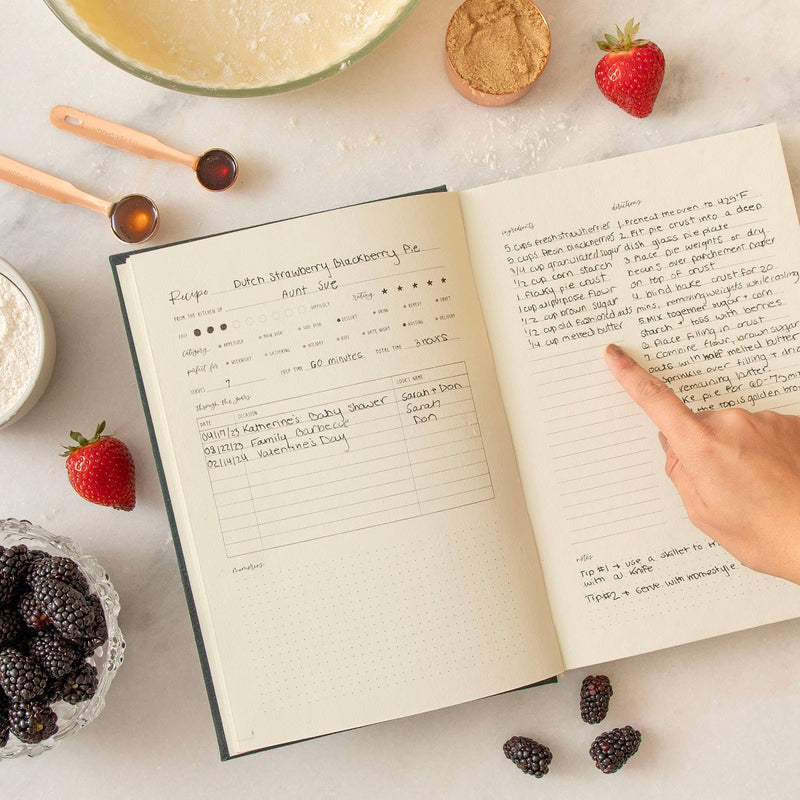 Recipe Dutch Strawberry Blackberry Pie
FROM THE KITCHEN OF Aunt Sue
EASY DIFFICULT rating ★ ★ ★ ★ ★
category APPETIZER MAIN DISH SIDE DISH DESSERT DRINK REMEDY CRAFT
perfect for WEEKNIGHT GATHERING HOLIDAY KIDS DATE NIGHT HOSTING DELIVERY
SERVES 7 PREP TIME 60 minutes TOTAL TIME 3 hours
through the years
DATE OCCASION COOK'S NAME
04/17/23 Katherine's Baby Shower Sarah + Don
Family Barbecue Sarah
02/14/24 Valentine's Day Don
memories
ingredients
5 cups fresh strawberries
5 cups fresh blackberries
3/4 cup granulated sugar
1/2 cup corn starch
1 flaky pie crust
1 cup all purpose flour
1/2 cup brown sugar
1/2 cup old fashioned oats
1/4 cup melted butter
directions
1. Preheat the oven to 425°F
2. Fit pie crust into a deep
dish glass pie plate
3. Place pie weights or dry
beans over parchment paper
on top of crust
4. blind bake crust for 20
mins, removing weights while cooling
5. Mix together sugar + corn
starch + toss with berries
6. Place filling in crust
7. Combine flour, brown sugar
oats with half melted butter
sprinkle over filling +
remaining butter.
pie for 60-75 min
the top is golden
notes
Tip #1 → use a skillet to
with a knife
Tip #2 → serve with homestyle